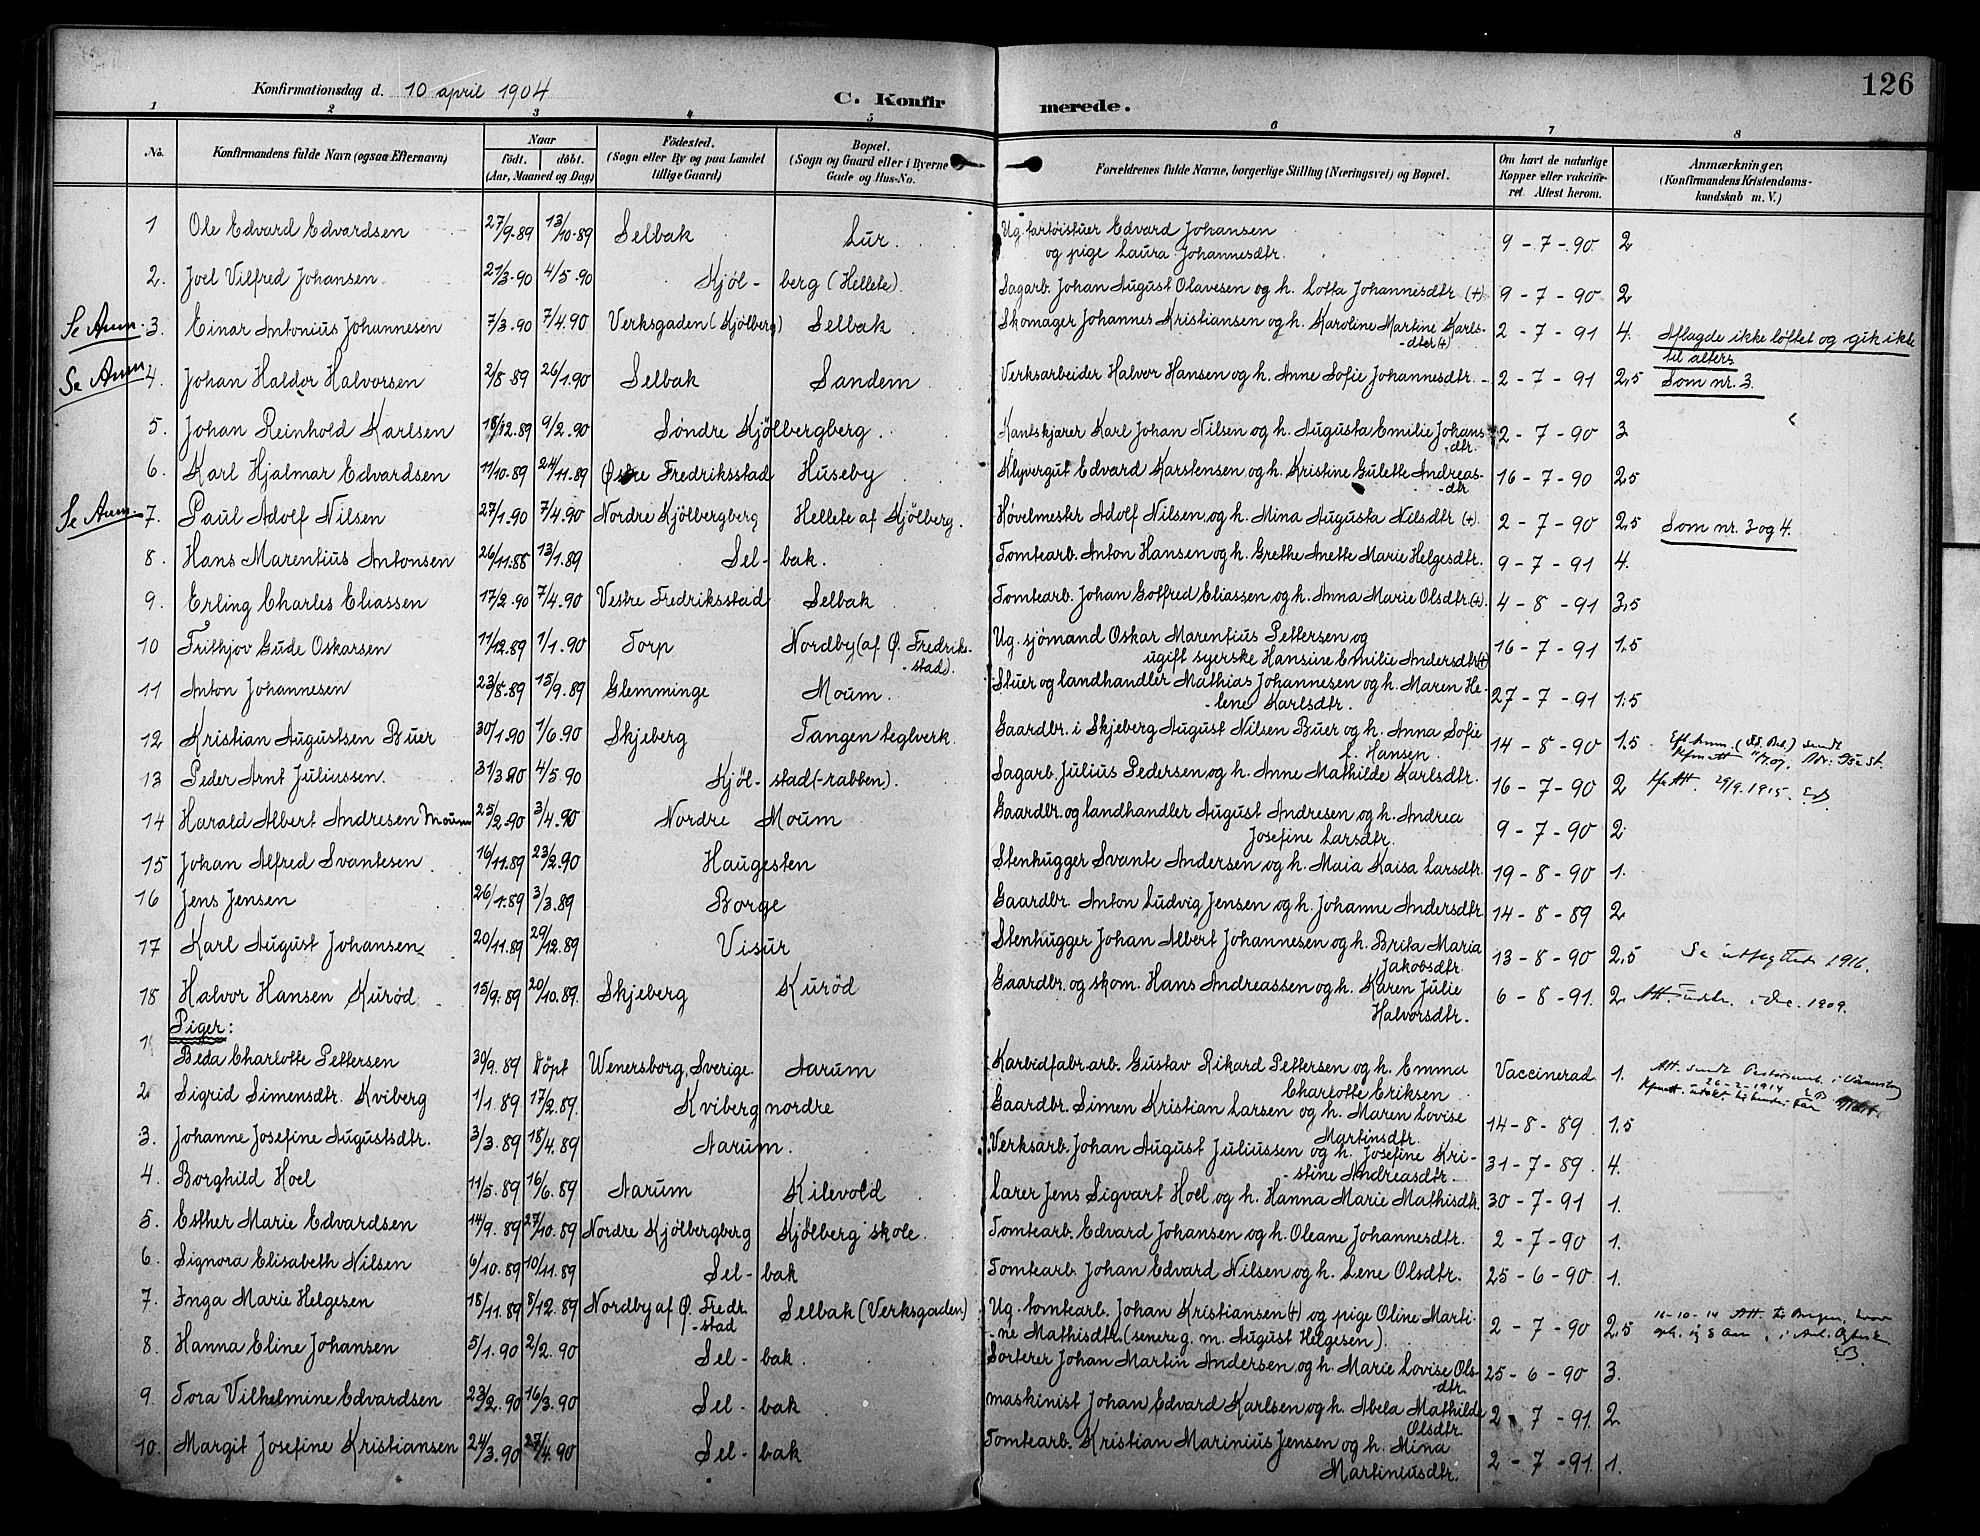 126
Konfirmationsdag d. 10 april 1904
C. Konfirmerede.
1 2 3 4 5 6 7 8
No. Konfirmandens fulde Navn (ogsaa Efternavn) Naar födt. döbt. (Aar, Maaned og Dag) Födested. (Sogn eller By og paa Landet tillige Gaard) Bopæl. (Sogn og Gaard eller i Byerne Gade og Hus-No. Forældrenes fulde Navne, borgerlige Stilling (Næringsvei) og Bopæl. Om havt de naturlige Kopper eller vakcineret. Attest herom. Anmærkninger. (Konfirmandens Kristendomskundskab m. V.)
1 Ole Edvard Edvardsen 27/9.89 13/10.89 Selbak Lur. Ug. fartøistuer Edvard Johansen
og pige Laura Johannesdtr. 9-7-90. 2
2. Joel Vilfred Johansen 21/3.90 4/5.90 Kjöl-berg (Hellete). Sagarb. Johan August Olavesen og h. Lotta Johannesdtr (+) 9-7-90 2
Se Anm. 3. Einar Antonius Johannesen 7/3.90 7/4.90 Verksgaden (Kjölberg) Selbak Skomager Johannes Kristiansen og h. Karoline Martine Karls-
-dter (+) 2-7-91 4. Aflagde ikke løftet og gik ikke
til alters
Se Anm 4. Johan Haldor Halvorsen 2/8 89 26/1.90 Selbak Sandem Verksarbeider Halvor Hansen og h. Anne Sofie Johannesdtr. 2-7-91 2,5 Som nr. 3.
5. Johan Reinhold Karlsen 18/12.89 9/2.90 Söndre Kjölbergberg. Kantskjærer Karl Johan Nilsen og h. Augusta Emilie Johans
dtr. 2-7-90 3
6. Karl Hjalmar Edvardsen 11/10.89 24/11.89 Østre Fredriksstad Huseby Klyvergut Edvard Karstensen og h. Kristine Gulette Andreas-
-dtr 16-7-90 2,5
Se Anm. 7. Paul Adolf Nilsen 27/1.90 7/4.90 Nordre Kjölbergberg Hellete af Kjölberg. Høvelmester Adolf Nilsen og h. Mina Augusta Nilsdtr (+). 2-7-90 2,5 Som nr. 3 og 4.
8. Hans Marentius Antonsen 26/11.88 13/1.89 Sel-bak. Tomtearb. Anton Hansen og h. Grethe Anette Marie Helgesdtr. 9-7-91 4.
9. Erling Charles Eliassen 17/2.90 7/4.90 Vestre Fredriksstad Selbak Tomtearb. Johan Gotfred Eliassen og h. Anna Marie Olsdtr. (+). 4-8-91 3,5
10 Frithjov Gude Oskarsen 11/12.89 1/1.90 Torp Nordby (af Ø. Fredrik-
-stad). Ug. sjömand Oskar Marentius Pettersen og
ugift syerske Hansine Emilie Andersdtr (+) 16-7-91 1.5
11 Anton Johannesen 23/8.89 15/9.89 Glemminge Moum. Stuer og landhandler Mathias Johannesen og h. Maren He-
-lene Karlsdtr. 27-7-91 1.5
12 Kristian Augustsen Buer 30/1.90 1/6.90 Skjeberg Tangen teglverk. Gaardbr. i Skjeberg August Nilsen Buer og h. Anna Sofie
f. Hansen. 14-8-90 1.5
13 Peder Arnt Juliussen 31/3.90 4/5.90 Kjöl-stad (-rabben). Sagarb. Julius Pedersen og h. Anne Mathilde Karlsdtr. 16-7-90 2 29/9.1915. EB.
14 Harald Albert Andresen Moum 25/2.90 3/4.90 Nordre Moum Gaardbr. og landhandler August Andresen og h. Andrea
Josefine Larsdtr. 9-7-90 2
15 Johan Alfred Svantesen 16/11.89 23/2.90 Haugesten Stenhugger Svante Andersen og h. Maia Kaisa Larsdtr. 19-8-90 1.
16 Jens Jensen 26/1.89 3/3.89 Borge Gaardbr. Anton Ludvig Jensen og h. Johanne Andersdtr 14-8-89 2
17 Karl August Johansen 20/11.89 29/12.89 Visur Stenhugger Johan Albert Johannesen og h. Brita Maria
Jakobsdtr. 13-8-90 2,5 Se utflyttet 1916.
18 Halvor Hansen Kuröd 15/9.89 20/10.89. Skjeberg Kuröd Gaardbr. og skom. Hans Andreassen og h. Karen Julie
Halvorsdtr. 6-8-91. 2 Att. i Dec. 1909.
Piger:
1 Beda Charlotte Pettersen 30/9.89 Döpt Wenersborg, Sverige. Aarum Karbidfabr.arb. Gustav Rikard Pettersen og h. Emma
Charlotte Eriksen Vaccinerad 1. Att. sendt
26-2-1914
2. Sigrid Simensdtr. Kviberg 1/1.89 17/2.89. Kviberg nordre Gaardbr. Simen Kristian Larsen og h. Maren Lovise
Martinsdtr. 14-8-89 1.5
3. Johanne Josefine Augustsdtr. 3/3.89 18/4.89 Aarum. Verksarb. Johan August Juliussen og h. Josefine Kri-
-stine Andreasdtr. 31-7-89. 4.
4. Borghild Hoel 11/5.89 16/6.89 Aarum Kilevold Lærer Jens Sigvart Hoel og h. Hanna Marie Mathisdtr. 30-7-91 1.
5. Esther Marie Edvardsen 14/9.89 27/10.89 Nordre Kjölbergberg Kjölberg skole. Tomtearb. Edvard Johansen og h. Oleane Johannesdtr. 2-7-90 1.
6. Signora Elisabeth Nilsen 6/10.89 10/11.89 Sel-bak Tomtearb. Johan Edvard Nilsen og h. Lene Olsdtr. 25-6-90 1.
7. Inga Marie Helgesen 18/11.89 8/12.89 Nordby af Ø. Fredr.
-stad Selbak (Verksgaden) Ug. tomtearb. Johan Kristiansen (+) og pige Oline Marti-
-ne Mathisdtr. (senere g. m. August Helgesen). 2-7-90 2,5
8. Hanna Eline Johansen 5/1.90 2/2.90 Sel-bak. Sorterer Johan Martin Andersen og h. Marie Lovise Ols-
-dtr. 25-6-90 3.
9. Tora Vilhelmine Edvardsen 23/2.90 16/3.90 Sel-bak maskinist Johan Edvard Karlsen og h. Abela Mathilde
Olsdtr. 2-7-91 2
10. Margit Josefine Kristiansen 24/3.90 27/4.90 Sel-bak Tomtearb. Kristian Marinius Jensen og h. Mina
Martiniusdtr. 2-7-91. 1.